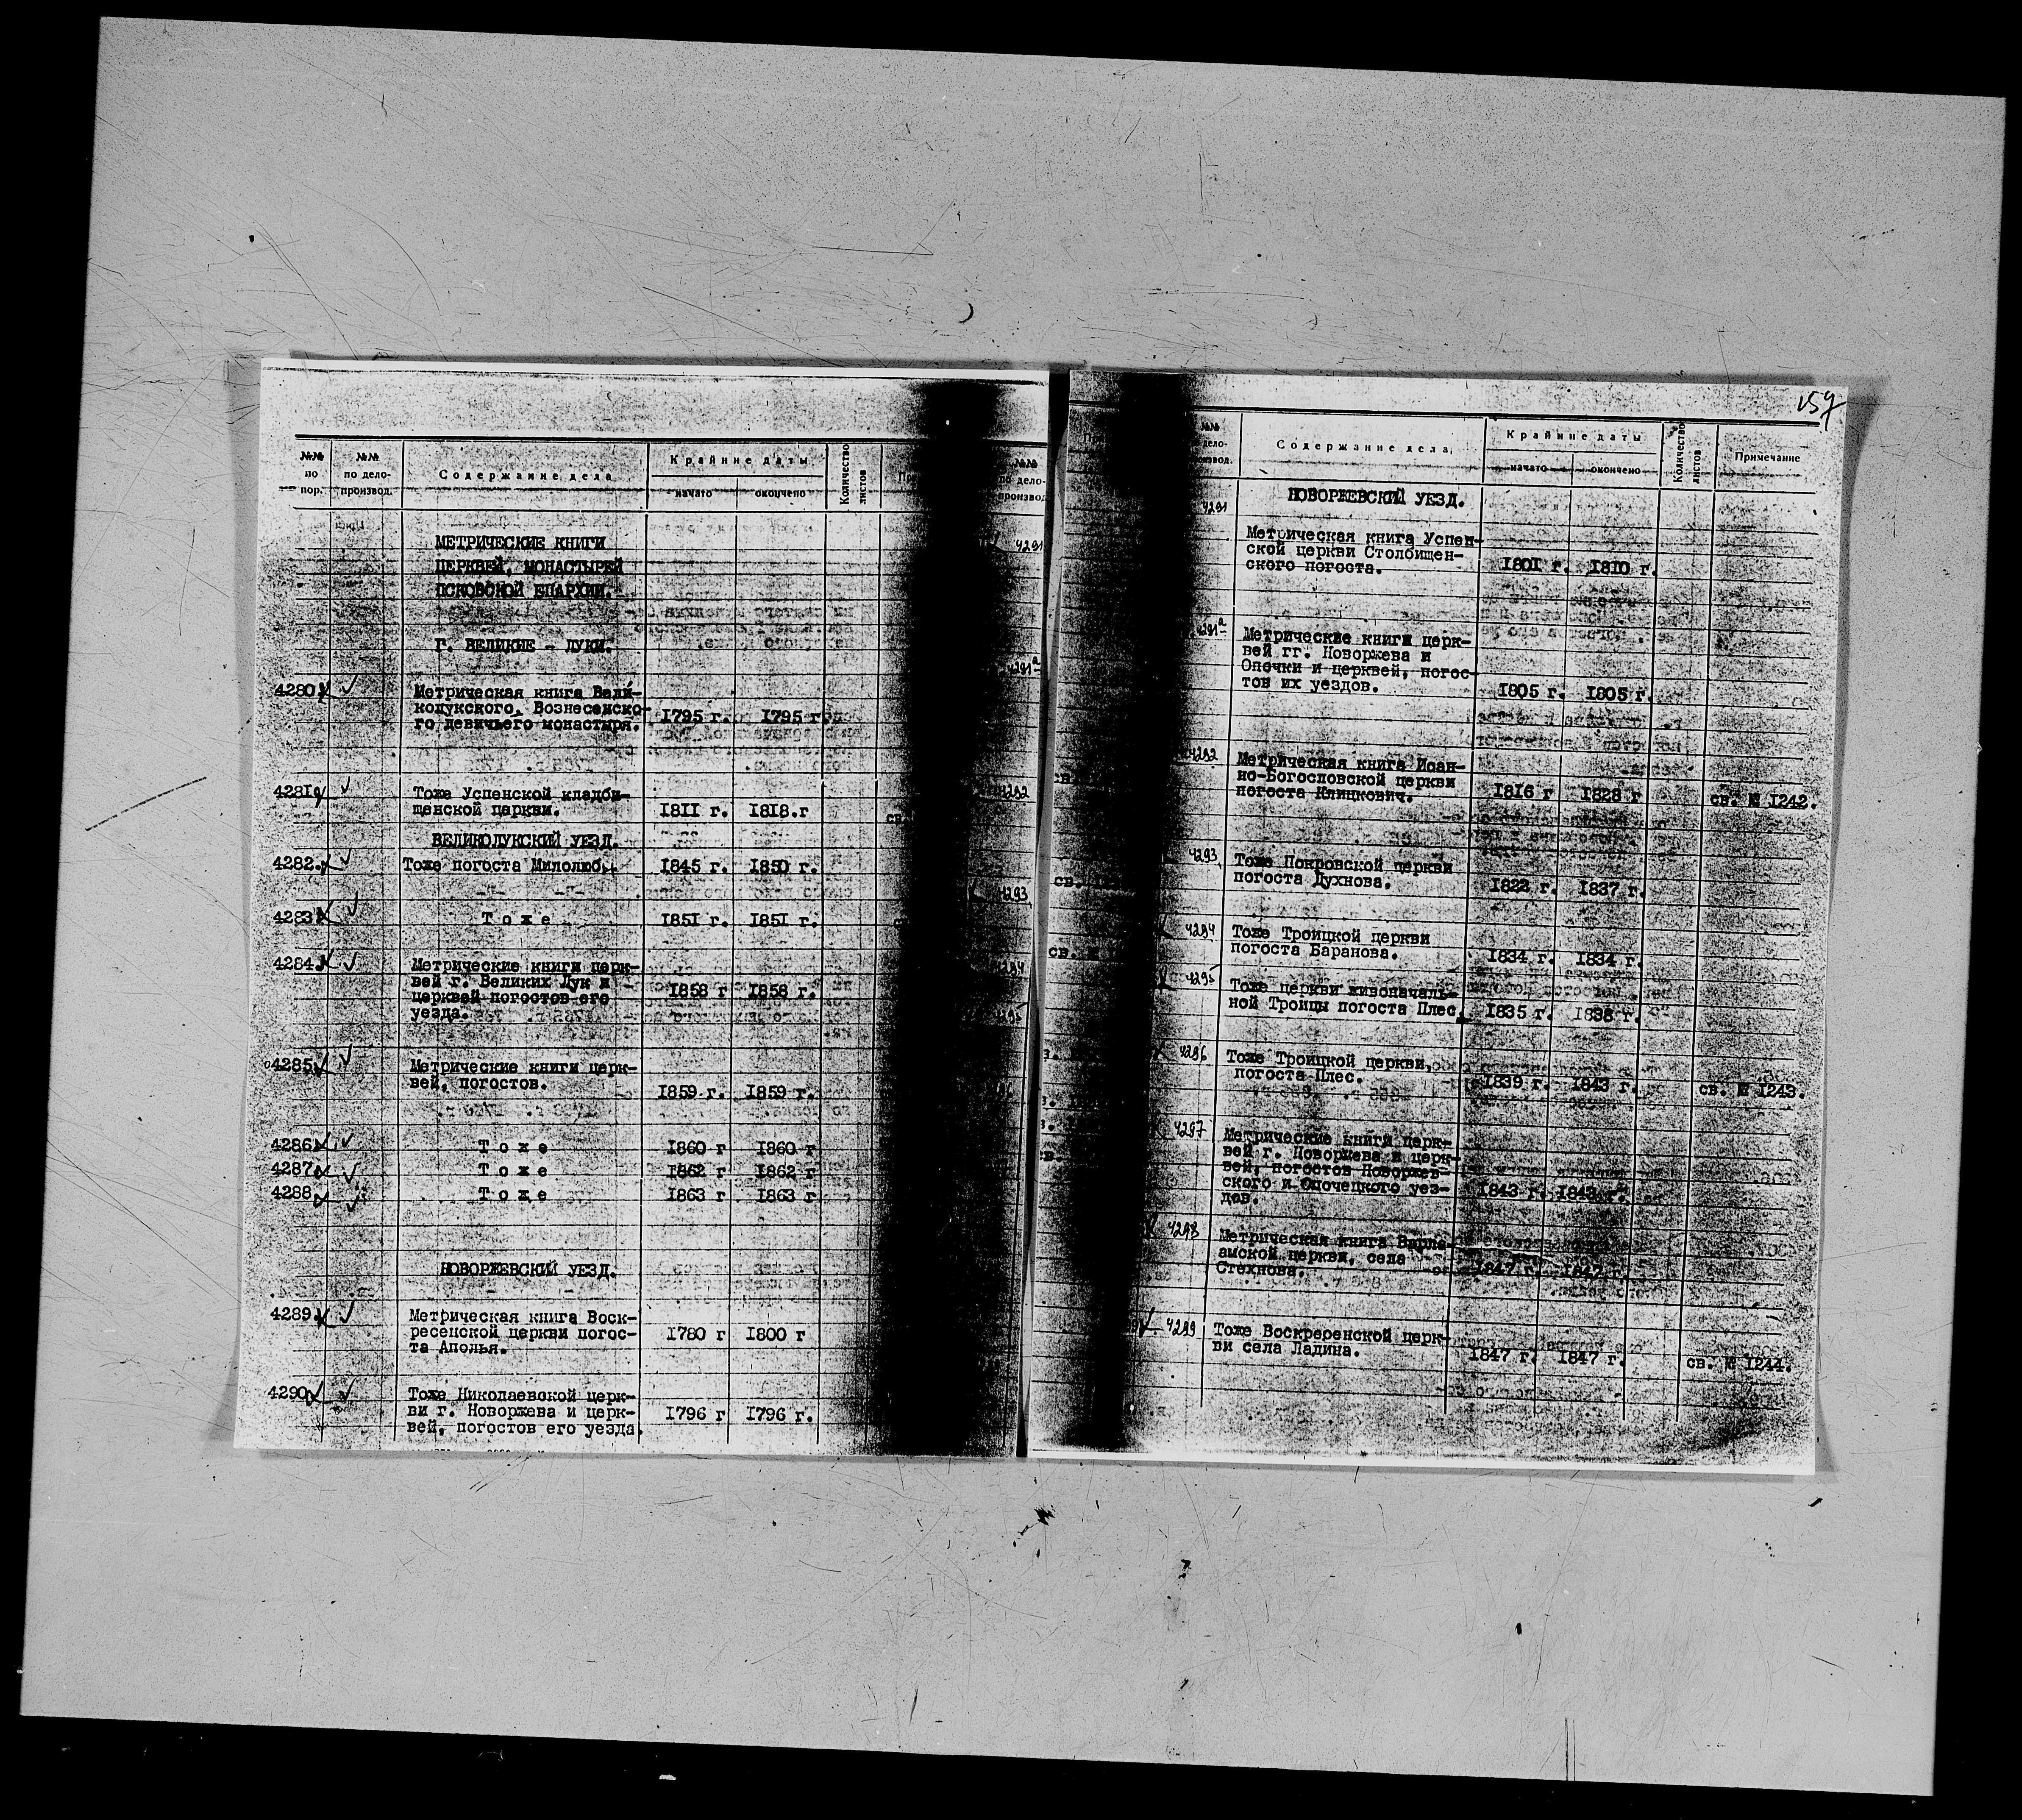 №№ по пор.
№№ по дело-производ.
Содержание дела
Крайние даты
начато
окончено
Количество листов
МЕТРИЧЕСКИЕ КНИГИ
ЦЕРКВЕЙ, МОНАСТЫРЕЙ
ПСКОВСКОЙ ЕПАРХИИ.
Г. ВЕЛИКИЕ - ЛУКИ.
4280
Метрическая книга Вели-
колукского, Вознесенско-
го девичьего монастыря. 1795 г. 1795 г.
4281
Тоже Успенской кладби-
щенской церкви. 1811 г. 1818.г
ВЕЛИКОЛУКСКИЙ УЕЗД.
4282. Тоже погоста Милолюбы 1845 г. 1850 г.
-"- -"-
4283 Тоже 1851 г. 1851 г.
4284
Метрические книги церк-
вей г. Великих Лук и
церквей погостов его 1858 г 1858 г.
уезда.
4285
Метрические книги церк-
вей, погостов. 1859 г. 1859 г.
4286 Тоже 1860 г 1860 г
4287 Тоже 1862 г 1862 г
4288 Тоже 1863 г 1863 г
НОВОРЖЕВСКИЙ УЕЗД.
4289
Метрическая книга Воск-
ресенской церкви погос- 1780 г 1800 г
та Аполья.
4290
Тоже Николаевской церк-
ви г. Новоржева и церк- 1796 г 1796 г.
вей, погостов его уезда.
№№ по дело-производ.
4291
4291а
4292
4293
4294
4295
157
№№ дело-производ.
Содержание дела,
Крайние даты
начато
окончено
Количество листов
Примечание
НОВОРЖЕВСКИЙ УЕЗД.
4291
Метрическая книга Успен-
ской церкви Столбищен-
ского погоста. 1801 г. 1810 г.
4291а
Метрические книги церк-
вей гг. Новоржева и
Опочки и церквей, погос-
тов их уездов. 1805 г. 1805 г.
4292
Метрическая книга Иоан-
но-Богословской церкви
погоста Клицкович. 1816 г 1828 г св. № 1242.
4293
Тоже Покровской церкви
погоста Духнова. 1822 г. 1837 г.
4294
Тоже Троицкой церкви
погоста Баранова. 1834 г. 1834 г.
4295
Тоже церкви живоначаль-
ной Троицы погоста Плес. 1835 г. 1838 г.
4296
Тоже Троицкой церкви,
погоста Плес. 1839 г. 1843 г. св. № 1243.
4297
Метрические книги церк-
вей г. Новоржева и церк-
вей, погостов Новоржев-
ского и Опочецкого уез- 1843 г. 1843 г.
дов.
4298
Метрическая книга Варла-
амской церкви, села
Стехнова. 1847 г. 1847 г.
4299
Тоже Воскресенской церк-
ви села Ладина. 1847 г. 1847 г. св. № 1244.